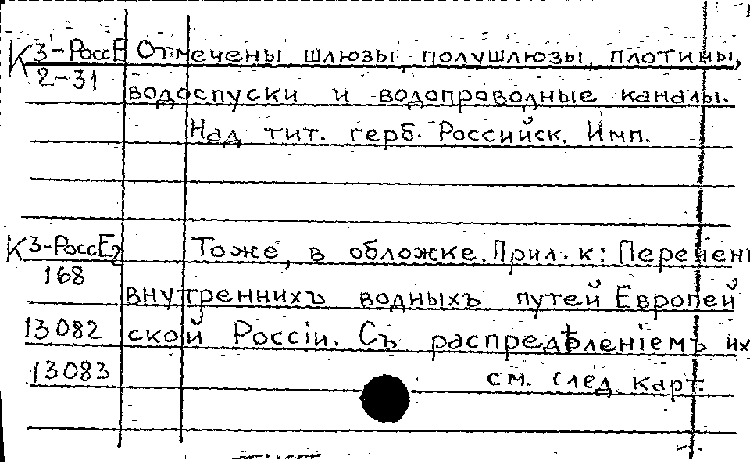 К 3-РоссЕ Отмечены шлюзы, полушлюзы, плотины,
2-31 водоспуски и водопроводные каналы.
Над тит. герб. Российск. Имп.
К 3-РоссЕ2 Тоже, в обложке. Прил. к: Перечень
168 внутреннихъ водныхъ путей Европей
13082 ской Россіи. Съ распредѣленіемъ их
13083 см. след. карт.